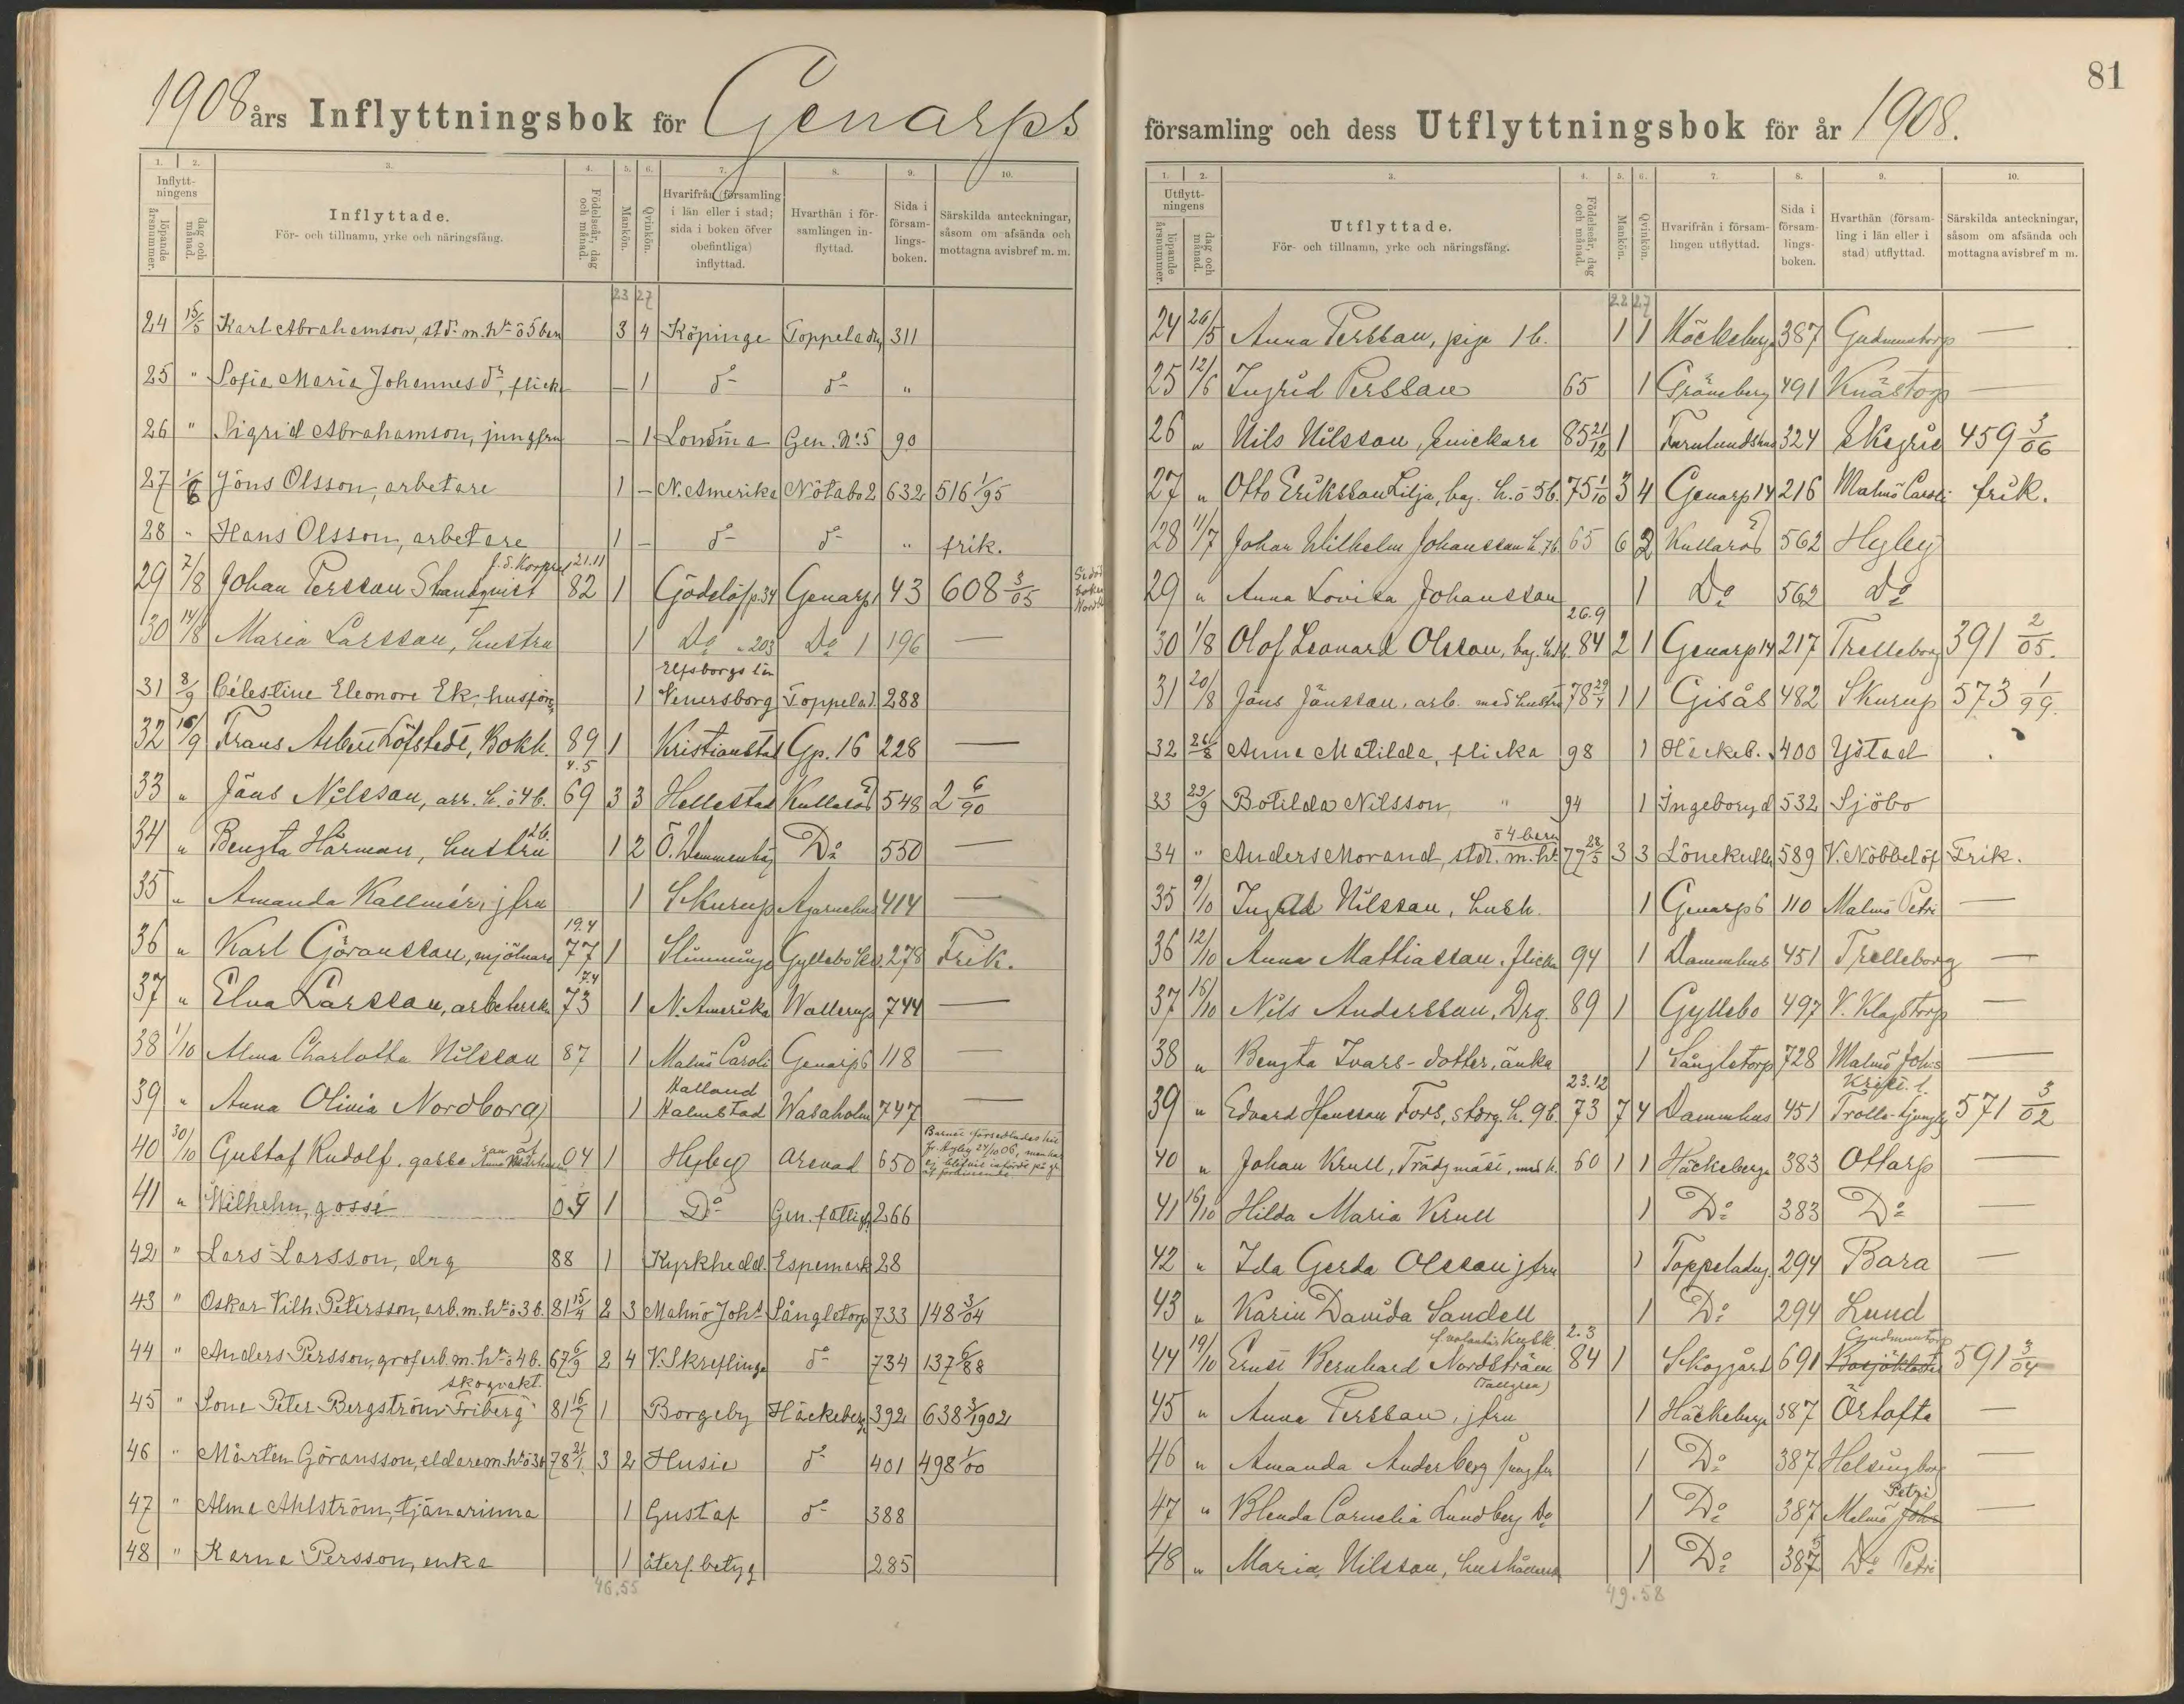 81
1908 års Inflyttningsbok för Genarps
1. 2. 3. 4. 5. 6. 7. 8. 9. 10.
Inflyttningens löpande årsnummer. dag och månad.
Inflyttade. För- och tillnamn, yrke och näringsfång.
Födelseår, dag och månad.
Mankön.
Qvinkön.
Hvarifrån (församling i län eller i stad; sida i boken öfver obefintliga) inflyttad.
Hvarthän i församlingen inflyttad.
Sida i församlingsboken.
Särskilda anteckningar, såsom om afsända och mottagna avisbref m. m.
23 27
24 15/5 Karl Abrahamson, std. m. h. o 5 barn 3 4 Köping Toppeladg 311
25 " Sofia Maria Johannesdr, flicka — 1 do do "
26 " Sigrid Abrahamson, jungfru — 1 Gen. No 5 90
27 1/6 Jöns Olsson, arbetare 1 — N. Amerika Nötabo 2 632 516 1/95
28 " Hans Olsson, arbetare 1 — do do " frik.
29 7/8 Johan Persson Strandqvist f.d. Korpral 21.11 82 1 Gödelöf p.34 Genarp 1 43 608 3/05
30 14/8 Maria Larsson, hustru 1 Do " 203 Do 1 196 —
31 8/9 Célestine Eleonore Ek, husför. 1 Elfsborgs län Venersborg Toppelad. 288
32 16/9 Frans Löfstedt, Bokh. 89 1 Kristianstad Gp. 16 228 —
33 " Jöns Nilsson, arr. h. o 4 b. 4.5 69 3 3 Hellestad Kullaröd 548 2 6/90
34 " Bengta Hårman, hustru 2b. 1 2 Ö. Wemmenhög Do 550 —
35 " Amanda Kallmér, jfru 1 Skurup 414 —
36 " Karl Göransson, mjölnare 19.4 77 1 Slimminge Gyllebo 278 Frik.
37 " Elna Larsson, arbeterska 7.4 73 1 N. Amerika Wallerup 744 —
38 1/10 Alma Charlotta Nilsson 87 1 Malmö Caroli Genarp 6 118 —
39 " Anna Olivia Nordborg 1 Halland Halmstad Wasaholm 747 —
40 30/10 Gustaf Rudolf, gosse son af Anna 04 1 Hyby 650
41 " Wilhelm, gosse 04 1 Do Gen. fattigh. 266
42 " Lars Larsson, drg 88 1 Kyrkhedd. Espemark 28
43 " Oskar Vilh. Petersson, arb. m. h. o 3 b. 81 15/4 2 3 Malmö Joh. Långletorp 733 148 3/04
44 " Anders Persson, grofarb. m. h. o 4 b. 67 6/9 2 4 V. Skreflinge do 734 137 6/88
45 " Sone Peter Bergström Friberg skogvakt. 81 16/7 1 Borgeby Häckeberg 392 638 3/1902
46 " Mårten Göransson, eldare m. h. o 3 b 78 21/1 3 2 Husie do 401 498 1/00
47 " Alma Ahlström, tjänarinna 1 Gustaf do 388
48 " Karna Persson, enka 1 återf. betyg 285
46.55
församling och dess Utflyttningsbok för år 1908.
1. 2. 3. 4. 5. 6. 7. 8. 9. 10.
Utflyttningens löpande årsnummer. dag och månad.
Utflyttade. För- och tillnamn, yrke och näringsfång.
Födelseår, dag och månad.
Mankön.
Qvinkön.
Hvarifrån i församlingen utflyttad.
Sida i församlingsboken.
Hvarthän (församling i län eller i stad) utflyttad.
Särskilda anteckningar, såsom om afsända och mottagna avisbref m m.
22 27
24 26/5 Anna Persson, piga 1 b. 1 1 Häckeberga 387 Gudmuntorp —
25 12/6 Ingrid Persson 65 1 Gräneberg 491 Knästorp —
26 " Nils Nilsson, snickare 85 21/12 1 Furulundshus 324 Skegrie 459 3/06
27 " Otto Eriksson Lilja, bag. h. o 5 b. 75 1/10 3 4 Genarp 14 216 Malmö Caroli frik.
28 11/7 Johan Wilhelm Johansson h. 7 b 65 6 2 Kullaröd 562 Hyby
29 " Anna Lovisa Johansson 1 Do 562 Do
30 1/8 Olof Leonard Olsson, bag. h. 1 b. 26.9 84 2 1 Genarp 14 217 Trelleborg 391 2/05.
31 20/8 Jöns Jönsson, arb. med hustru 78 29/7 1 1 Gisås 482 Skurup 573 1/99.
32 26/8 Anna Matilda, flicka 98 1 Häckeb. 400 Ystad
33 29/9 Botilda Nilsson " 94 1 Ingeboryd 532 Sjöbo
34 " Anders Morand, std. m. h. o 4 barn 77 28/5 3 3 Lönekulla 589 V. Nöbbelöf Frik.
35 9/10 Ingrid Nilsson, hush. 1 Genarp 6 110 Malmö Petri —
36 12/10 Anna Mattiasson, flicka 94 1 Dammhus 451 Trelleborg —
37 15/10 Nils Andersson, Drg. 89 1 Gyllebo 497 V. Klagstorp —
38 " Bengta Ivars-dotter, änka 1 Långletorp 728 Malmö Joh:s —
39 " Edvard Hansson Fors, storg. h. 9 b. 23.12 73 7 4 Dammhus 451 Krist. l. Trolle-Ljungby 571 3/02
40 " Johan Krull, Trädgmäst, med h. 60 1 1 Häckeberga 383 Ottarp —
41 16/10 Hilda Maria Krull 1 Do 383 Do —
42 " Ida Gerda Olsson jfru 1 Toppeladug. 294 Bara —
43 " Karin Davida Sandell 1 Do 294 Lund
44 19/10 Ernst Bernhard Nordström f. volontär (Tallgren) 2.3 84 1 Skoggård 691 Bosjökloster Gudmuntorp 591 3/04
45 " Anna Persson, jfru 1 Häckeberga 387 Örtofta —
46 " Amanda Anderberg jungfru 1 Do 387 Helsingborg —
47 " Blenda Cornelia Lundberg Do 1 Do 387 Malmö Joh:s Petri —
48 " Maria Nilsson, hushållerska 1 Do 387 Do Petri
49.58